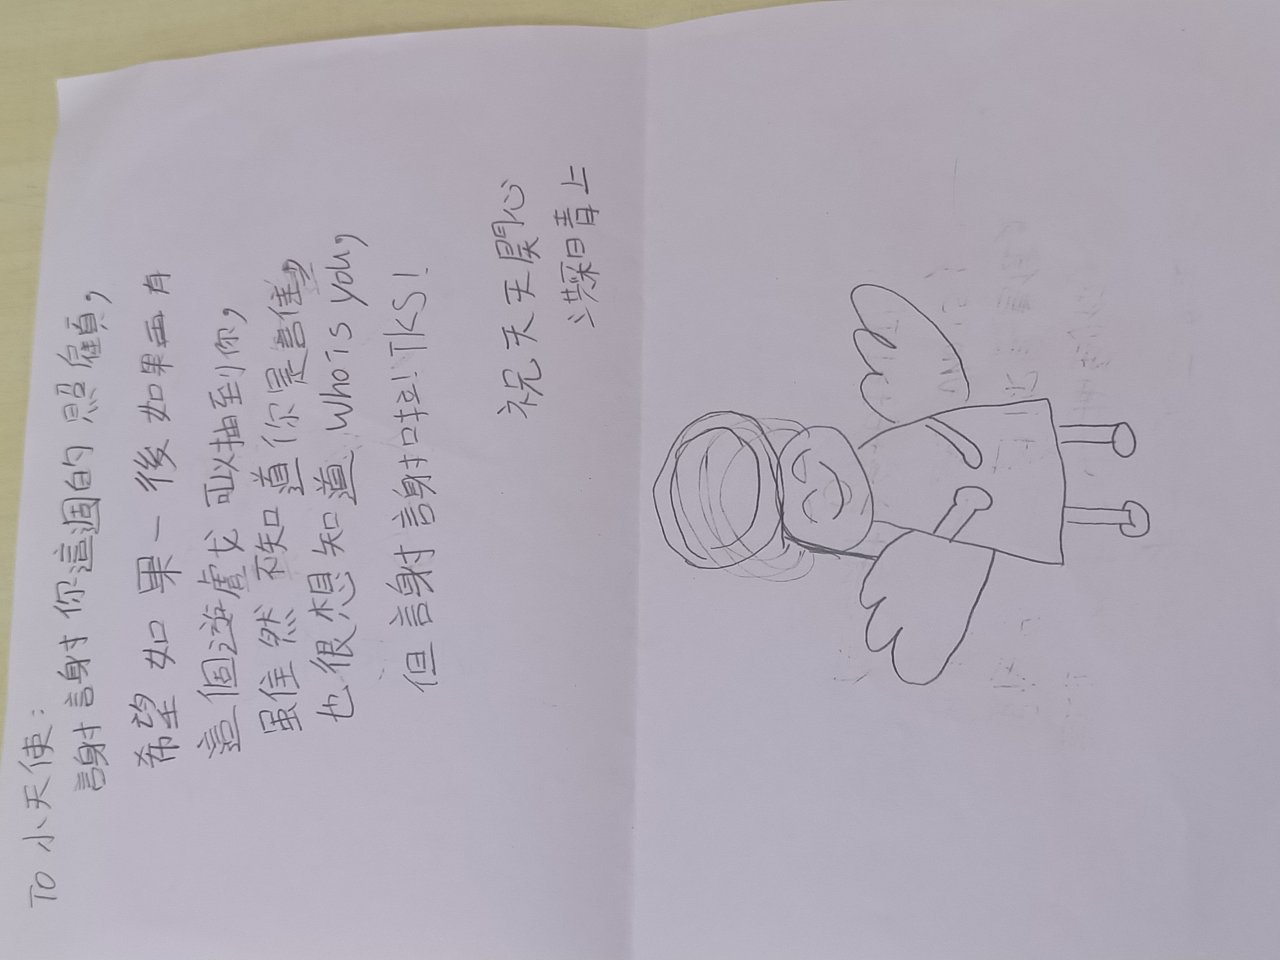 TO 小天使:
謝謝你這週的照顧,
希望如果一後如果再有
這個遊戲可以抽到你,
雖然不知道你是誰,
也很想知道 who is you,
但謝謝啦!TKS!
祝天天開心
上